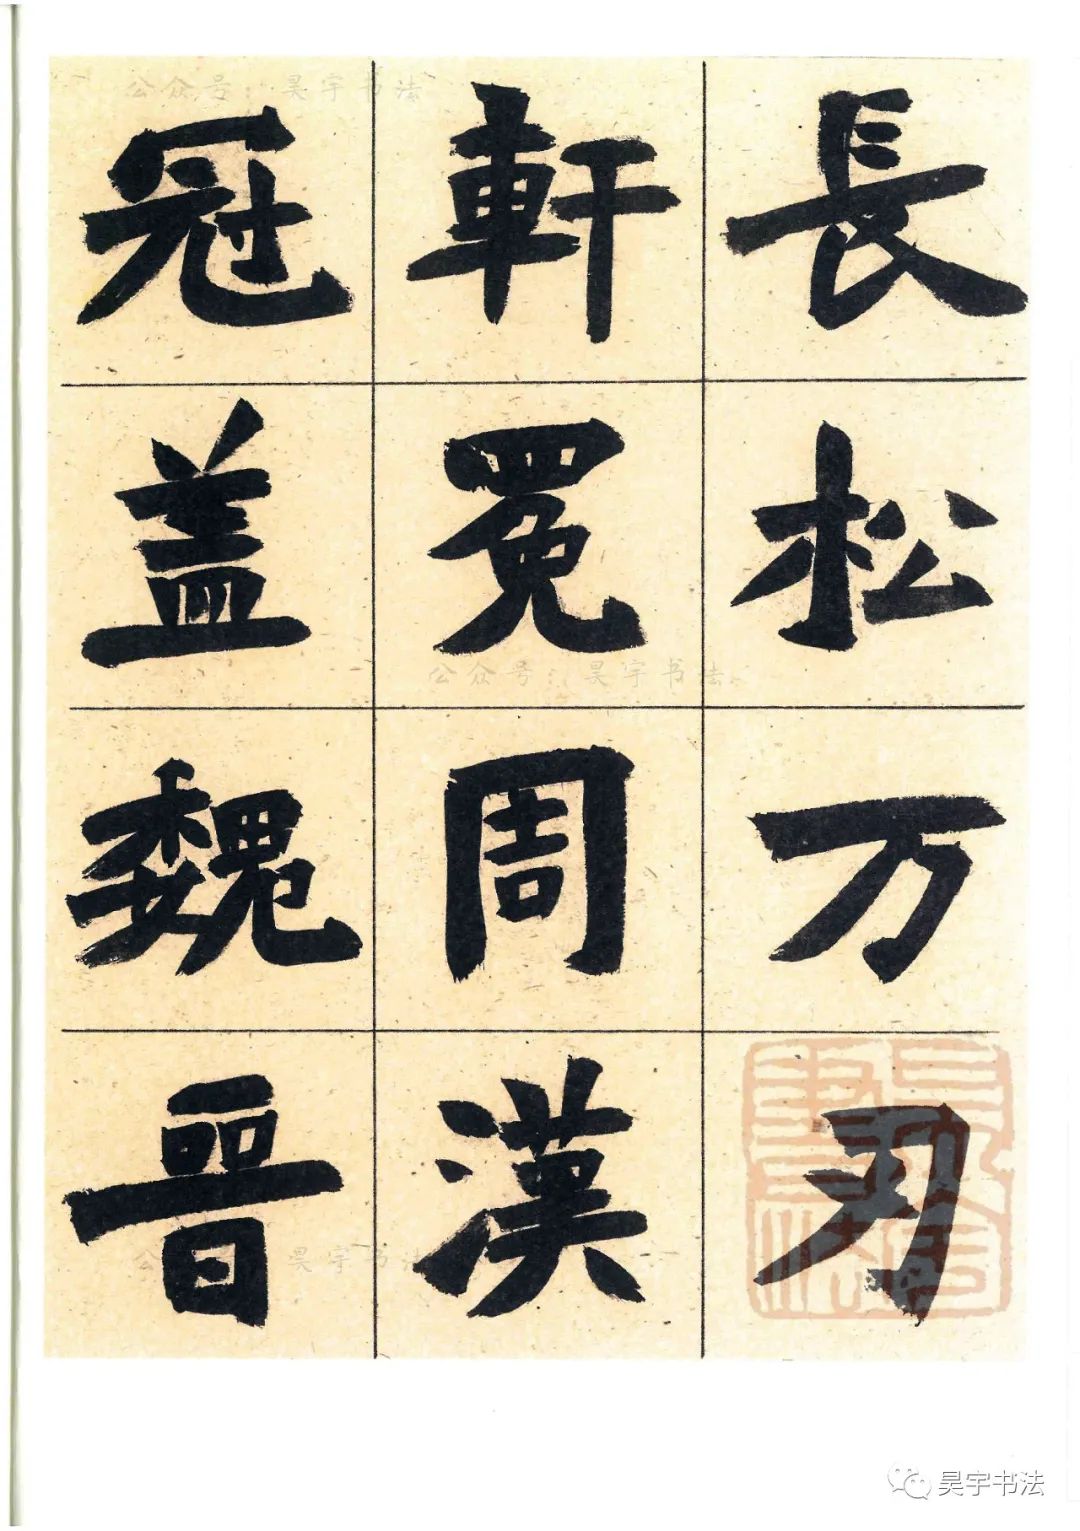 長松万刃
軒冕周漢
冠盖魏晋
公众号：昊宇书法
公众号：昊宇书法
公众号：昊宇书法
昊宇书法